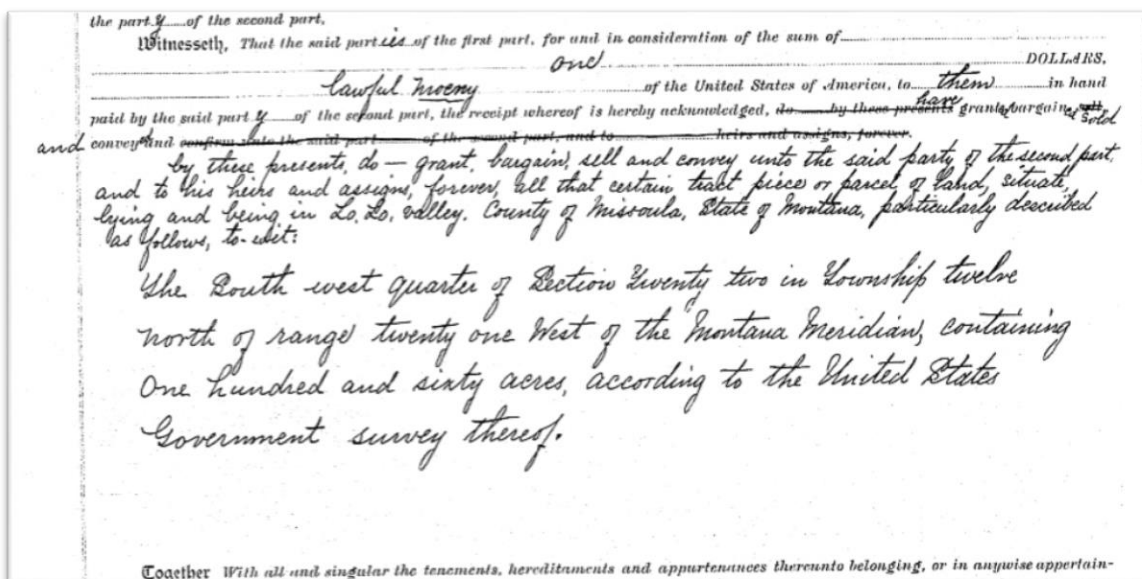 the party of the second part,
Witnesseth, That the said parties of the first part, for and in consideration of the sum of
one DOLLARS,
lawful moeny of the United States of America, to them in hand
paid by the said party of the second part, the receipt whereof is hereby acknowledged, do by these presents have granted bargained sell sold
and convey and confirm unto the said part of the second part, and to heirs and assigns, forever.
by these presents, do — grant, bargain, sell and convey unto the said party of the second part,
and to his heirs and assigns, forever, all that certain tract piece or parcel of land, situate,
lying and being in Lo. Lo. valley. County of Missoula, State of Montana, particularly described
as follows, to-wit:
The South west quarter of Section Twenty two in Township twelve
north of range twenty one West of the Montana Meridian, containing
One hundred and sixty acres, according to the United States
Government survey thereof.
Together With all and singular the tenements, hereditaments and appurtenances thereunto belonging, or in anywise appertain-